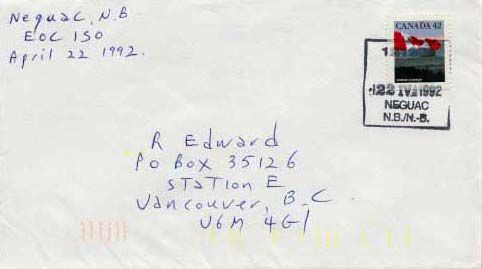 Neguac, N.B
EOC 1SO
April 22 1992.
CANADA 42
22 IV 1992
NEGUAC
N.B./N.-B.
R Edward
Po Box 35126
STATION E
Vancouver, B.C
V6M 4G1